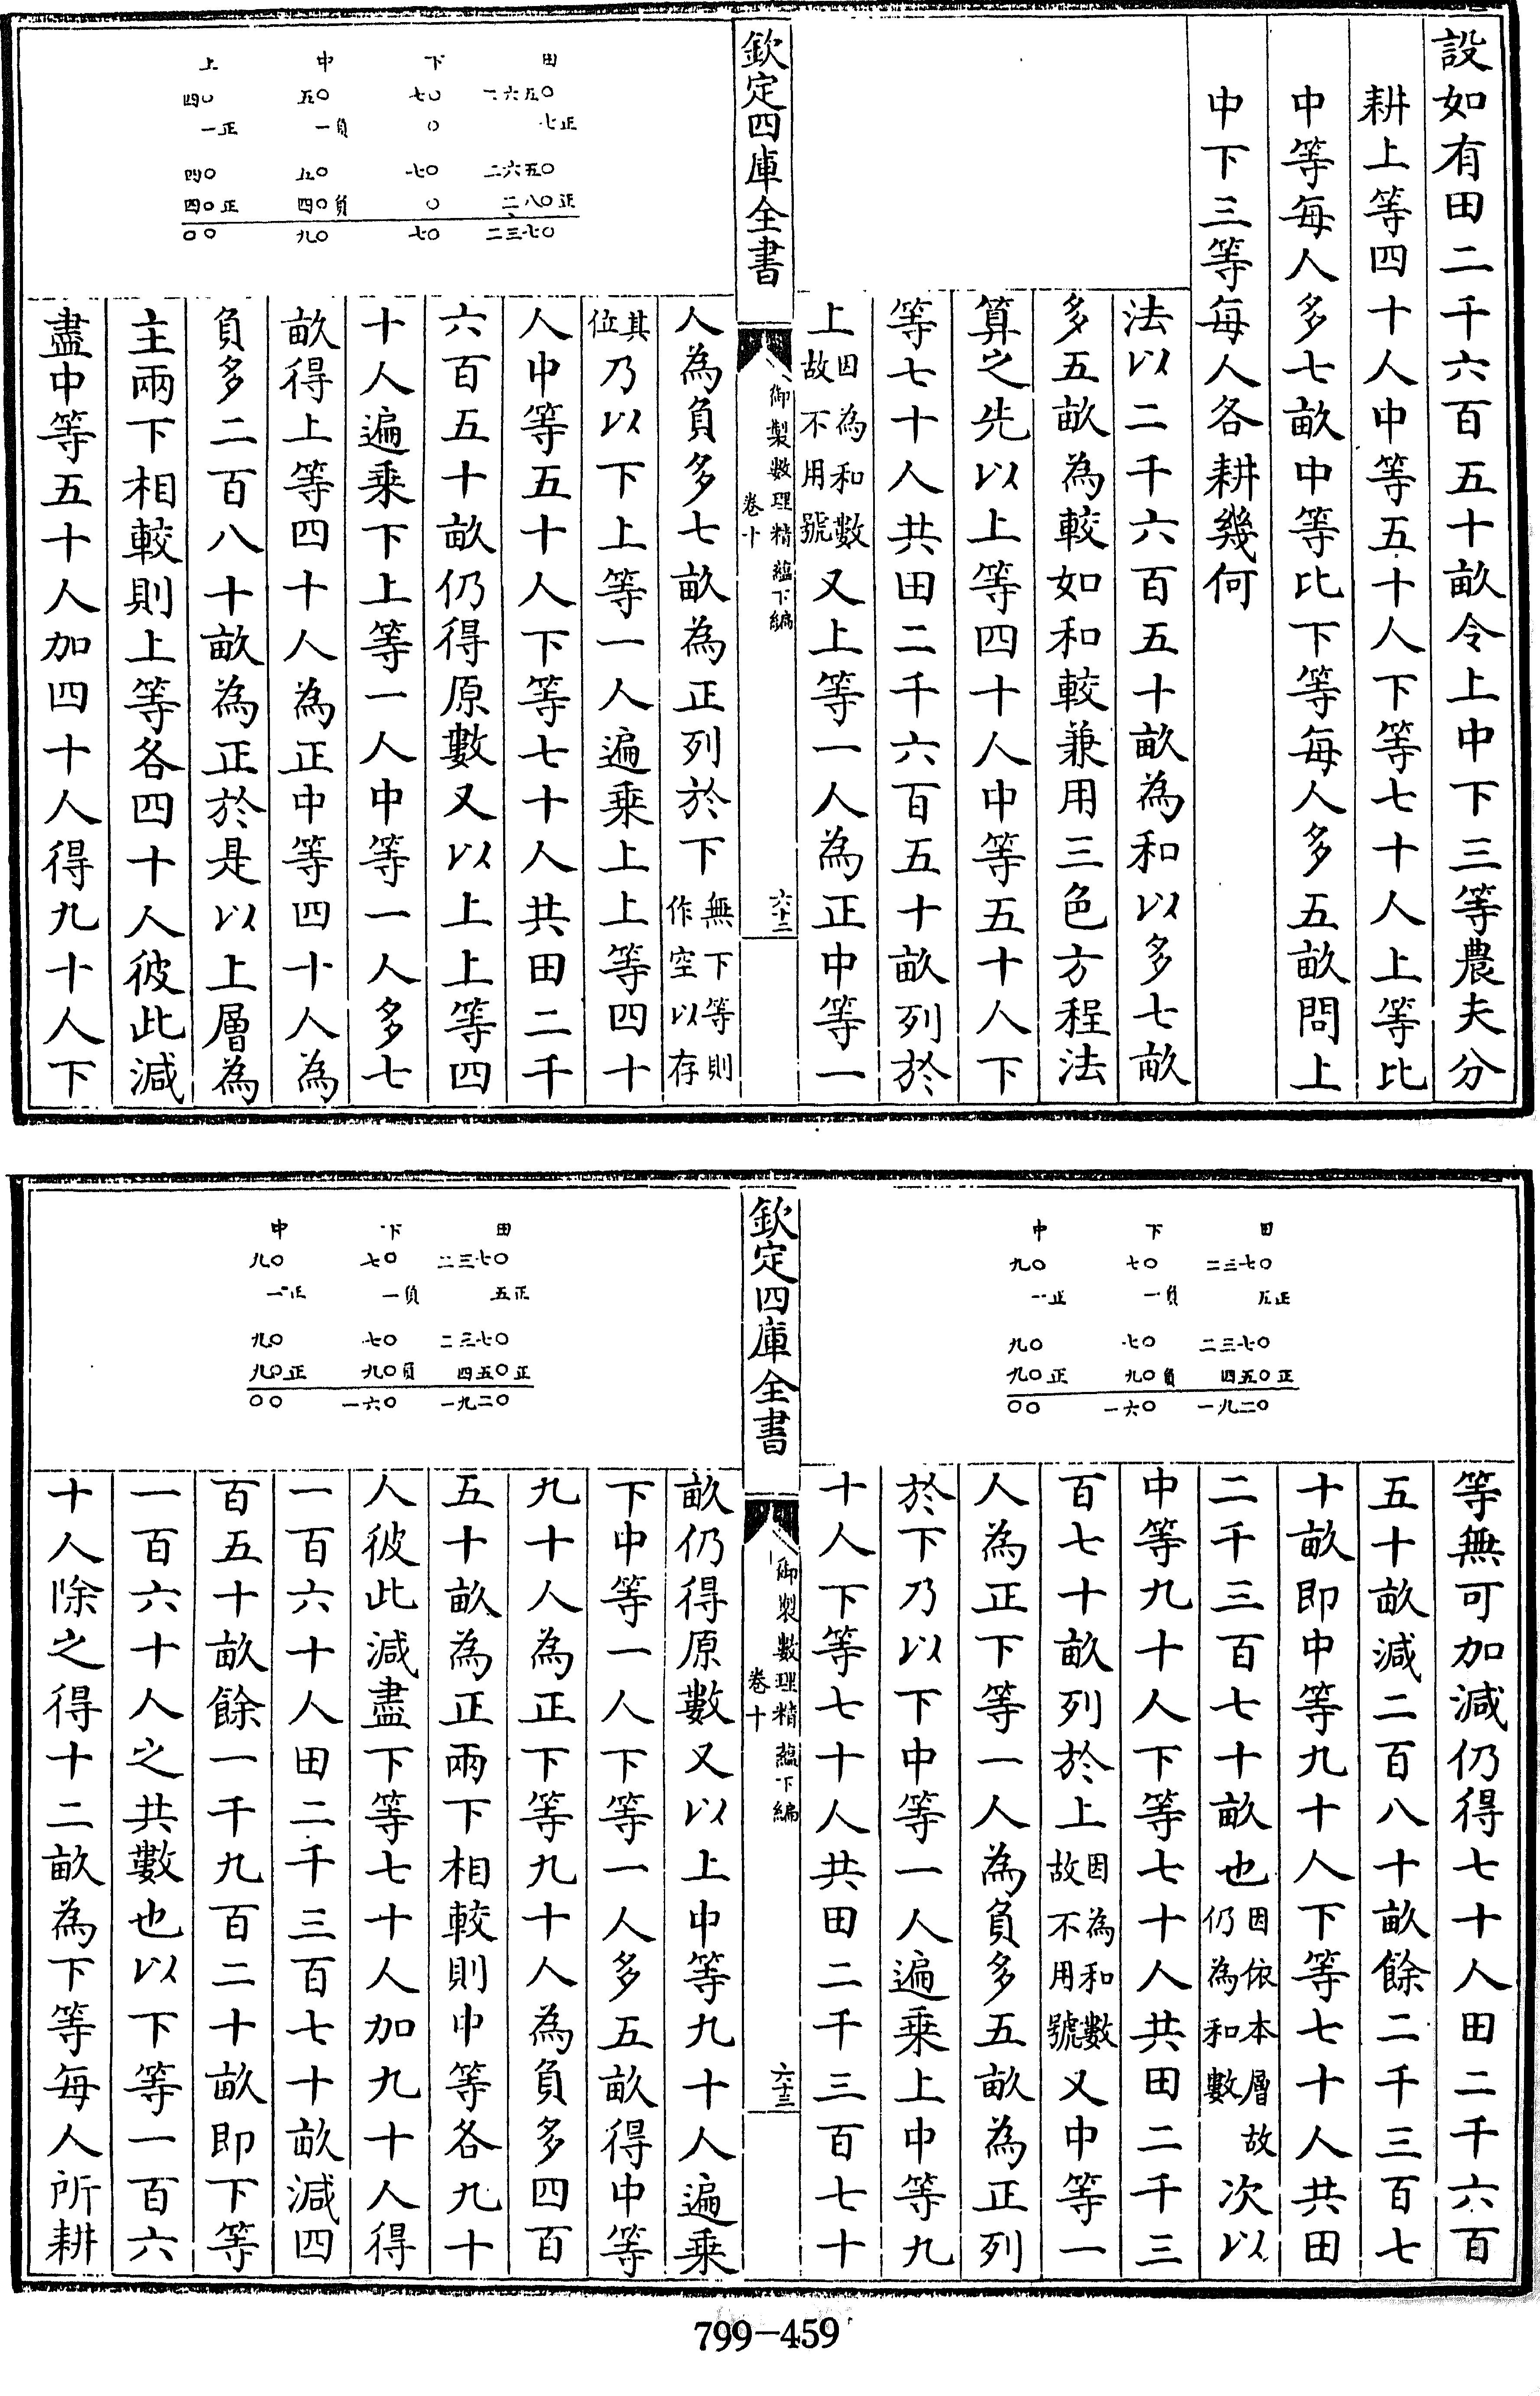 設如有田二千六百五十畝令上中下三等農夫分
耕上等四十人中等五十人下等七十人上等比
中等每人多七畝中等比下等每人多五畝問上
中下三等每人各耕幾何
法以二千六百五十畝為和以多七畝
多五畝為較如和較兼用三色方程法
算之先以上等四十人中等五十人下
等七十人共田二千六百五十畝列於
上因為和數故不用號又上等一人為正中等一
欽定四庫全書
御製數理精蘊下編
卷十
六十二
人為負多七畝為正列於下無下等則作空以存
其位乃以下上等一人遍乘上上等四十
人中等五十人下等七十人共田二千
六百五十畝仍得原數又以上上等四
十人遍乘下上等一人中等一人多七
畝得上等四十人為正中等四十人為
負多二百八十畝為正於是以上層為
主兩下相較則上等各四十人彼此減
盡中等五十人加四十人得九十人下
上 中 下 田
四〇 五〇 七〇 二六五〇
一正 一負 〇 七正
四〇 五〇 七〇 二六五〇
四〇正 四〇負 〇 二八〇正
〇〇 九〇 七〇 二三七〇
等無可加減仍得七十人田二千六百
五十畝減二百八十畝餘二千三百七
十畝即中等九十人下等七十人共田
二千三百七十畝也因依本層仍為和數故次以
中等九十人下等七十人共田二千三
百七十畝列於上因為和數故不用號又中等一
人為正下等一人為負多五畝為正列
於下乃以下中等一人遍乘上中等九
十人下等七十人共田二千三百七十
中 下 田
九〇 七〇 二三七〇
一正 一負 五正
九〇 七〇 二三七〇
九〇正 九〇負 四五〇正
〇〇 一六〇 一九二〇
欽定四庫全書
御製數理精蘊下編
卷十
六十三
畝仍得原數又以上中等九十人遍乘
下中等一人下等一人多五畝得中等
九十人為正下等九十人為負多四百
五十畝為正兩下相較則中等各九十
人彼此減盡下等七十人加九十人得
一百六十人田二千三百七十畝減四
百五十畝餘一千九百二十畝即下等
一百六十人之共數也以下等一百六
十人除之得十二畝為下等每人所耕
中 下 田
九〇 七〇 二三七〇
一正 一負 五正
九〇 七〇 二三七〇
九〇正 九〇負 四五〇正
〇〇 一六〇 一九二〇
799-459